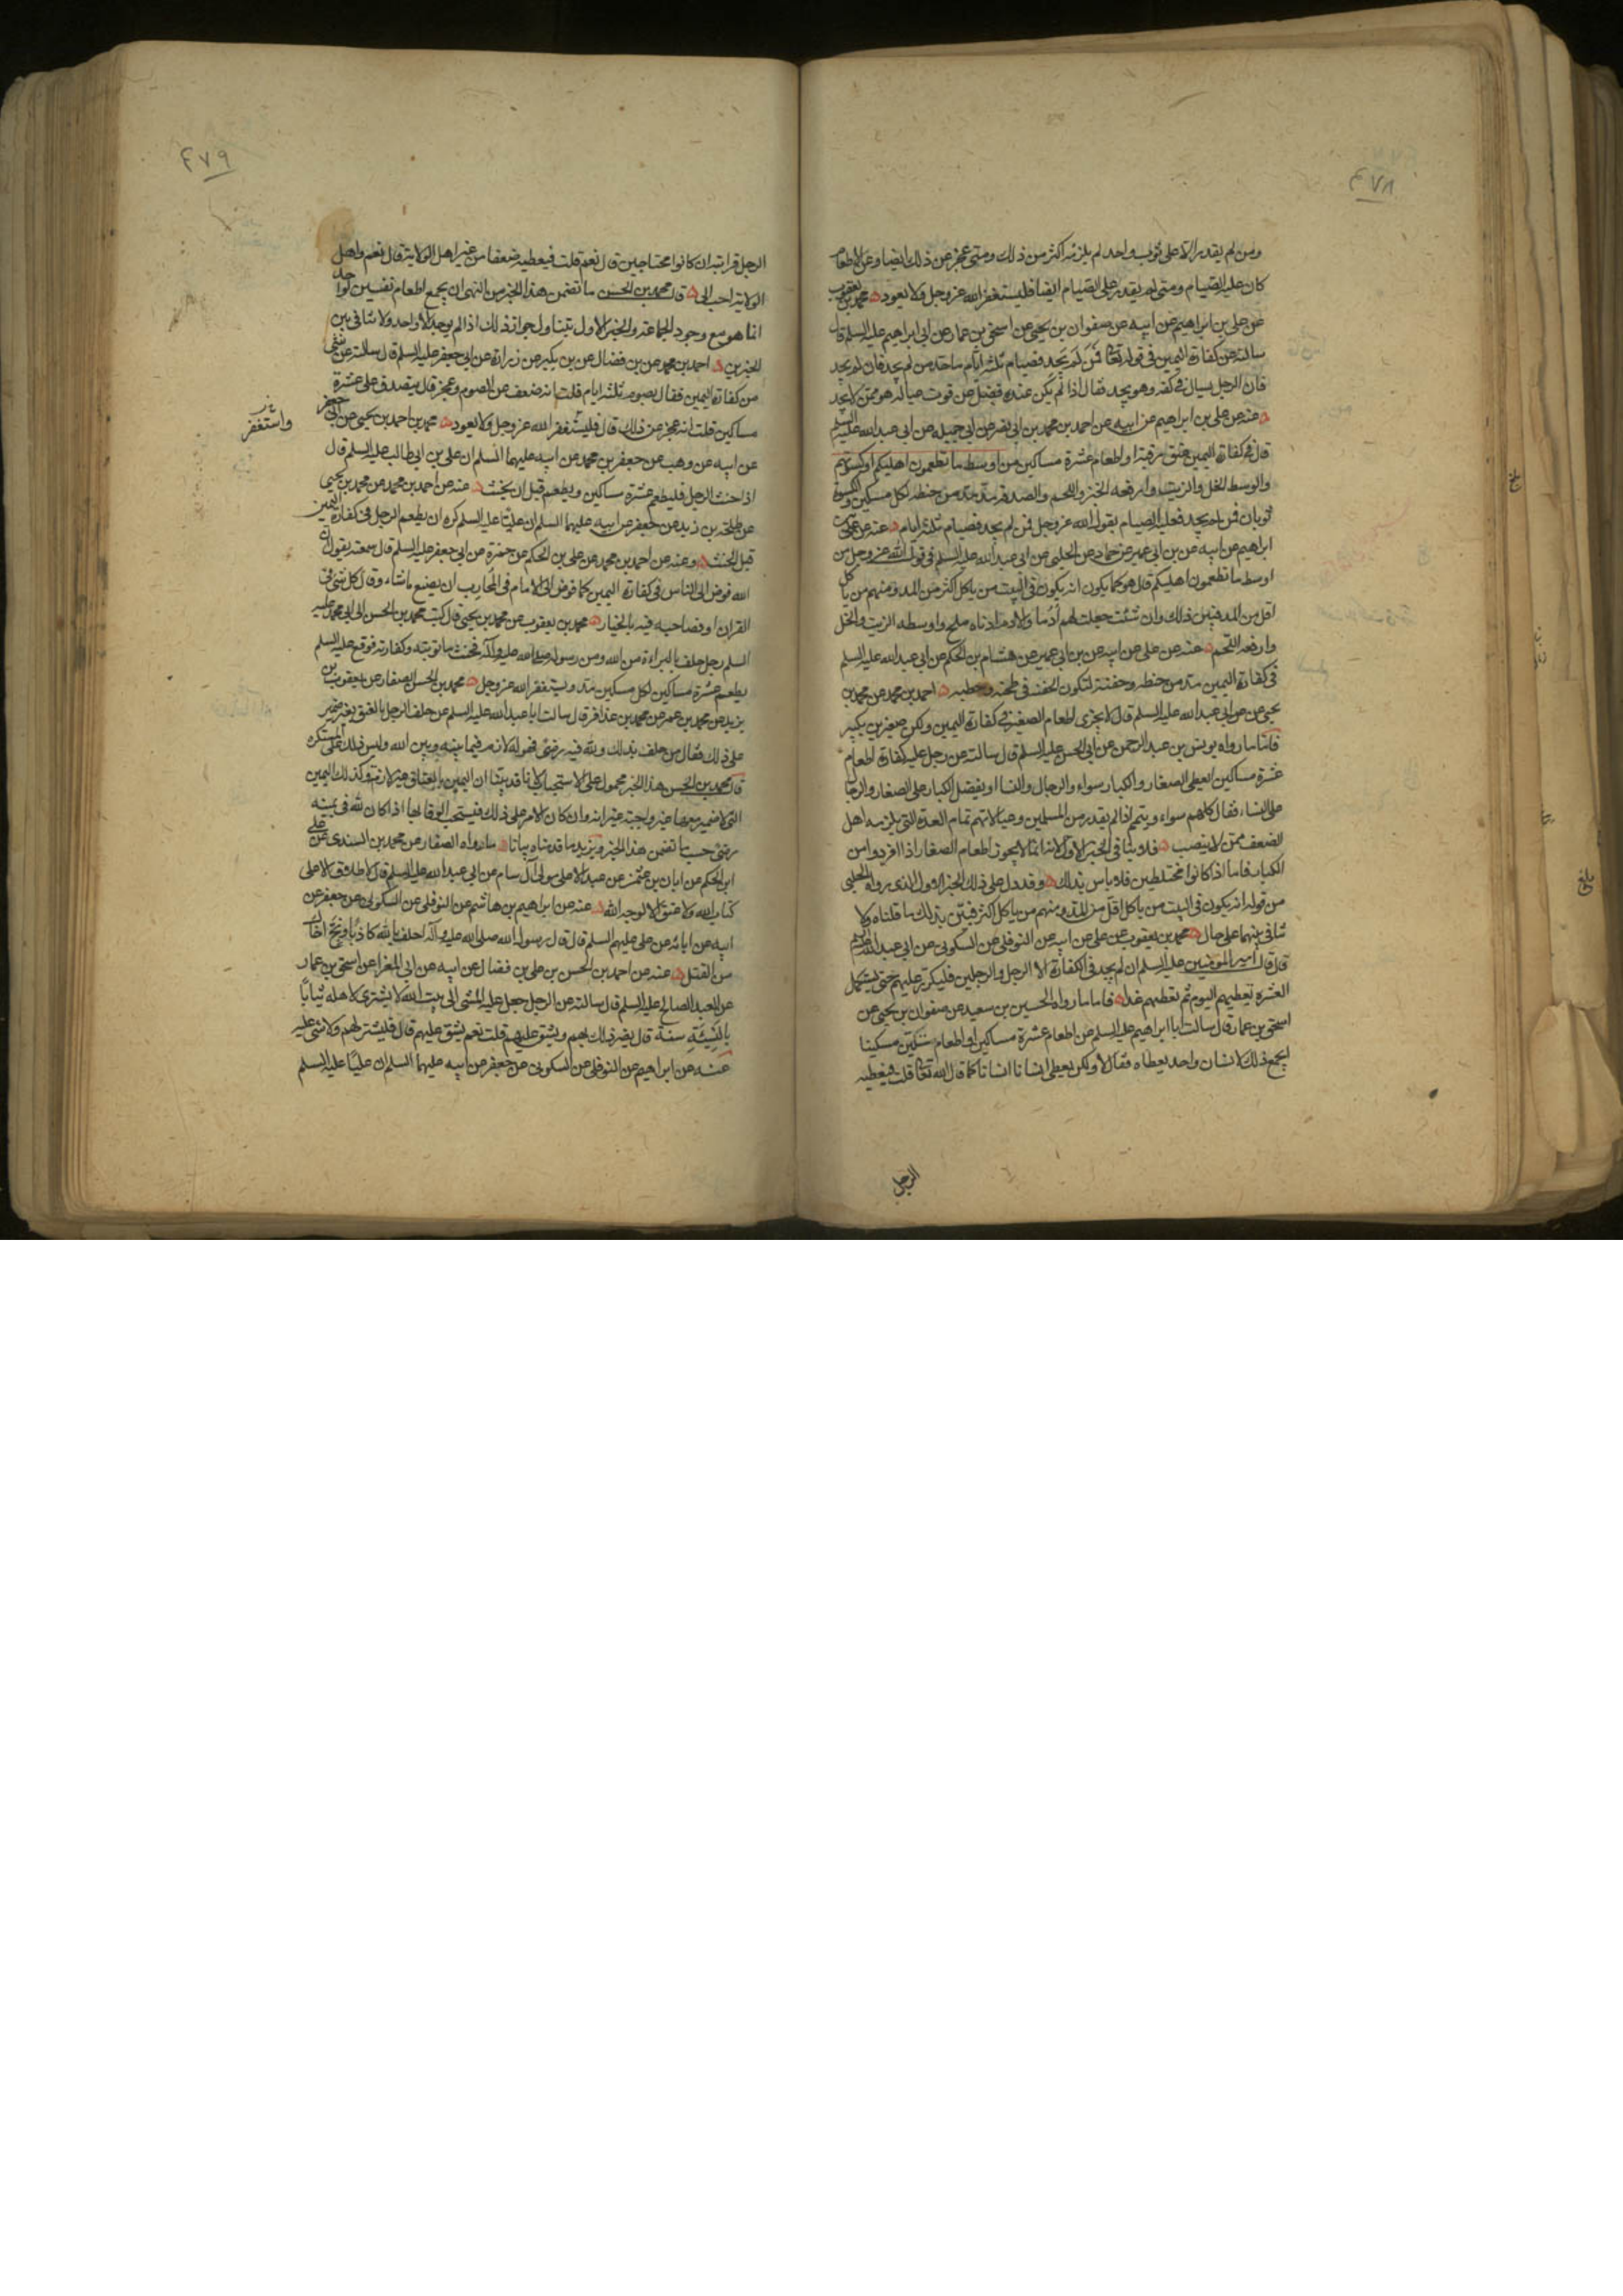 ٤٧٨
ومن لم يقدر الا على ثوب واحد لم يلزمه اكثر من ذلك ومتى عجز عن ذلك ايضا وعن الاطعام
كان عليه الصيام ومتى لم يقدر على الصيام ايضا فليستغفر الله عز وجل ولا يعود محمد بن يعقوب
عن علي بن ابراهيم عن ابيه عن صفوان بن يحيى عن اسحق بن عمار عن ابي ابراهيم عليه السلم قال
سالته عن كفارة اليمين في قوله تعالى فمن لم يجد فصيام ثلثة ايام ما حد من لم يجد فان لم يجد
فان الرجل يسال في كفه وهو يجد فقال اذا لم يكن عنده فضل عن قوت عياله هو ممن لا يجد
عنه عن علي بن ابراهيم عن ابيه عن احمد بن محمد بن ابي نصر عن ابي جميله عن ابي عبد الله عليه السلم
قال في كفارة اليمين عتق رقبة او اطعام عشرة مساكين من اوسط ما تطعمون اهليكم او كسوتهم
والوسط الخل والزيت وارفعه الخبز واللحم والصدقة مد مد من حنطه لكل مسكين والكسوة
ثوبان فمن لم يجد فعليه الصيام بقول الله عز وجل فمن لم يجد فصيام ثلثة ايام عنه عن علي بن
ابراهيم عن ابيه عن بن ابي عمير عن حماد عن الحلبي عن ابي عبد الله عليه السلم في قول الله عز وجل من
اوسط ما تطعمون اهليكم قال هو كما يكون انه يكون في البيت من ياكل اكثر من المد ومنهم من ياكل
اقل من المد فبين ذلك وان شئت جعلت لهم أدما والادم ادناه ملح واوسطه الزيت والخل
وارفعه اللحم عنه عن علي عن ابيه عن بن ابي عمير عن هشام بن الحكم عن ابي عبد الله عليه السلم
في كفارة اليمين مد من حنطه وحفنة لتكون الحفنة في طحنه وحطبه احمد بن محمد عن محمد بن
يحيى عن ابي عبد الله عليه السلم قال لا يجزى اطعام الصغير في كفارة اليمين ولكن صغيرين بكبير
فاما ما رواه يونس بن عبد الرحمن عن ابي الحسن عليه السلم قال سالته عن رجل عليه كفارة اطعام
عشرة مساكين ايعطى الصغار والكبار سواء والرجال والنسا او يفضل الكبار على الصغار والرجال
على النساء فقال كلهم سواء ويتمم اذا لم يقدر من المسلمين وعيالاتهم تمام العدة التي يلزمه اهل
الضعف ممن لا ينصب فلا ينافي الخبر الاول لانه انما لا يجوز اطعام الصغار اذا افردوا من
الكبار فاما اذا كانوا مختلطين فلا باس بذلك وقد دل على ذلك الخبر الاول الذي رواه الحلبي
من قوله انه يكون في البيت من ياكل اقل من المد ومنهم من ياكل اكثر فبين بذلك ما قلناه ولا
تنافي بينهما على حال محمد بن يعقوب عن علي عن ابيه عن النوفلي عن السكوني عن ابي عبد الله عليه السلم
قال قال امير المؤمنين عليه السلم ان لم يجد في الكفارة الا الرجل والرجلين فليكرر عليهم حتى يستكمل
العشرة يعطيهم اليوم ثم يعطيهم غدا فاما ما رواه الحسين بن سعيد عن صفوان بن يحيى عن
اسحق بن عمار قال سالت ابا ابراهيم عليه السلم عن اطعام عشرة مساكين او اطعام ستين مسكينا
ايجمع ذلك لانسان واحد يعطاه فقال لا ولكن يعطى انسانا انسانا كما قال الله تعالى قلت فيعطيه
الرجل
٤٧٩
الرجل قرابته ان كانوا محتاجين قال نعم قلت فيعطيه ضعفا من غير اهل الولاية قال نعم واهل
الولاية احب الي قال محمد بن الحسن ما تضمن هذا الخبر من النهي ان يجمع اطعام نفسين لواحد
انما هو مع وجود الجماعة والخبر الاول يتناول جواز ذلك اذا لم يوجد الا واحد ولا تنافي بين
الخبرين احمد بن محمد عن بن فضال عن بن بكير عن زرارة عن ابي جعفر عليه السلم قال سالته عن شي
من كفارة اليمين فقال يصوم ثلثة ايام قلت انه ضعف عن الصوم وعجز قال يتصدق على عشرة
مساكين قلت انه عجز عن ذلك قال فليستغفر الله عز وجل ولا يعود محمد بن احمد بن يحيى عن ابي جعفر
واستغفر
عن ابيه عن وهب عن جعفر بن محمد عن ابيه عليهما السلم ان علي بن ابي طالب عليه السلم قال
اذا حنث الرجل فليطعم عشرة مساكين ويطعم قبل ان يحنث عنه عن احمد بن محمد عن محمد بن يحيى
عن طلحة بن زيد عن جعفر عن ابيه عليهما السلم ان عليا عليه السلم كره ان يطعم الرجل في كفارة اليمين
قبل الحنث وعنه عن احمد بن محمد عن علي بن الحكم عن حمزة عن ابي جعفر عليه السلم قال سمعته يقول ان
الله فوض الى الناس في كفارة اليمين كما فوض الى الامام في المحارب ان يصنع ما شاء وقال كل شي في
القران او فصاحبه فيه بالخيار محمد بن يعقوب عن محمد بن يحيى قال كتب محمد بن الحسن الى ابي محمد عليه
السلم رجل حلف بالبراءة من الله ومن رسوله صلى الله عليه وآله فحنث ما توبته وكفارته فوقع عليه السلم
يطعم عشرة مساكين لكل مسكين مد ويستغفر الله عز وجل محمد بن الحسن الصفار عن يعقوب بن
يزيد عن محمد بن عمر عن محمد بن عذافر قال سالت ابا عبد الله عليه السلم عن حلف الرجل بالعتق بغير ضمير
على ذلك فقال من حلف بذلك ولله فيه رضى فهو له لازم فيما بينه وبين الله وليس ذلك على المستكره
قال محمد بن الحسن هذا الخبر محمول على الاستحباب لانا قد بينا ان اليمين بالعتاق غير لازمة وكذلك اليمين
التي لا ضمير معها غير واجبة غير انه وان كان الامر على ذلك فيستحب الوفا بها اذا كان لله في يمينه
رضى حسب ما تضمن هذا الخبر ويزيد ما قدمناه بيانا ما رواه الصفار عن محمد بن السندي عن علي
ابن الحكم عن ابان بن عثمن عن عبد الاعلى مولى آل سام عن ابي عبد الله عليه السلم قال لا طلاق الا على
كتاب الله ولا عتق الا لوجه الله عنه عن ابراهيم بن هاشم عن النوفلي عن السكوني عن جعفر عن
ابيه عن ابائه عن علي عليهم السلم قال قال رسول الله صلى الله عليه وآله احلف بالله كاذبا ونج اخاك
من القتل عنه عن احمد بن الحسن بن علي بن فضال عن ابيه عن ابي المغرا عن اسحق بن عمار
عن العبد الصالح عليه السلم قال سالته عن الرجل جعل عليه المشي الى بيت الله لا يشترى لاهله ثيابا
بالنسيئة سنة قال يضر ذلك بهم ويشق عليهم قلت نعم يشق عليهم قال فليشتر لهم ولا شي عليه
عنه عن ابراهيم عن النوفلي عن السكوني عن جعفر عن ابيه عليهما السلم ان عليا عليه السلم